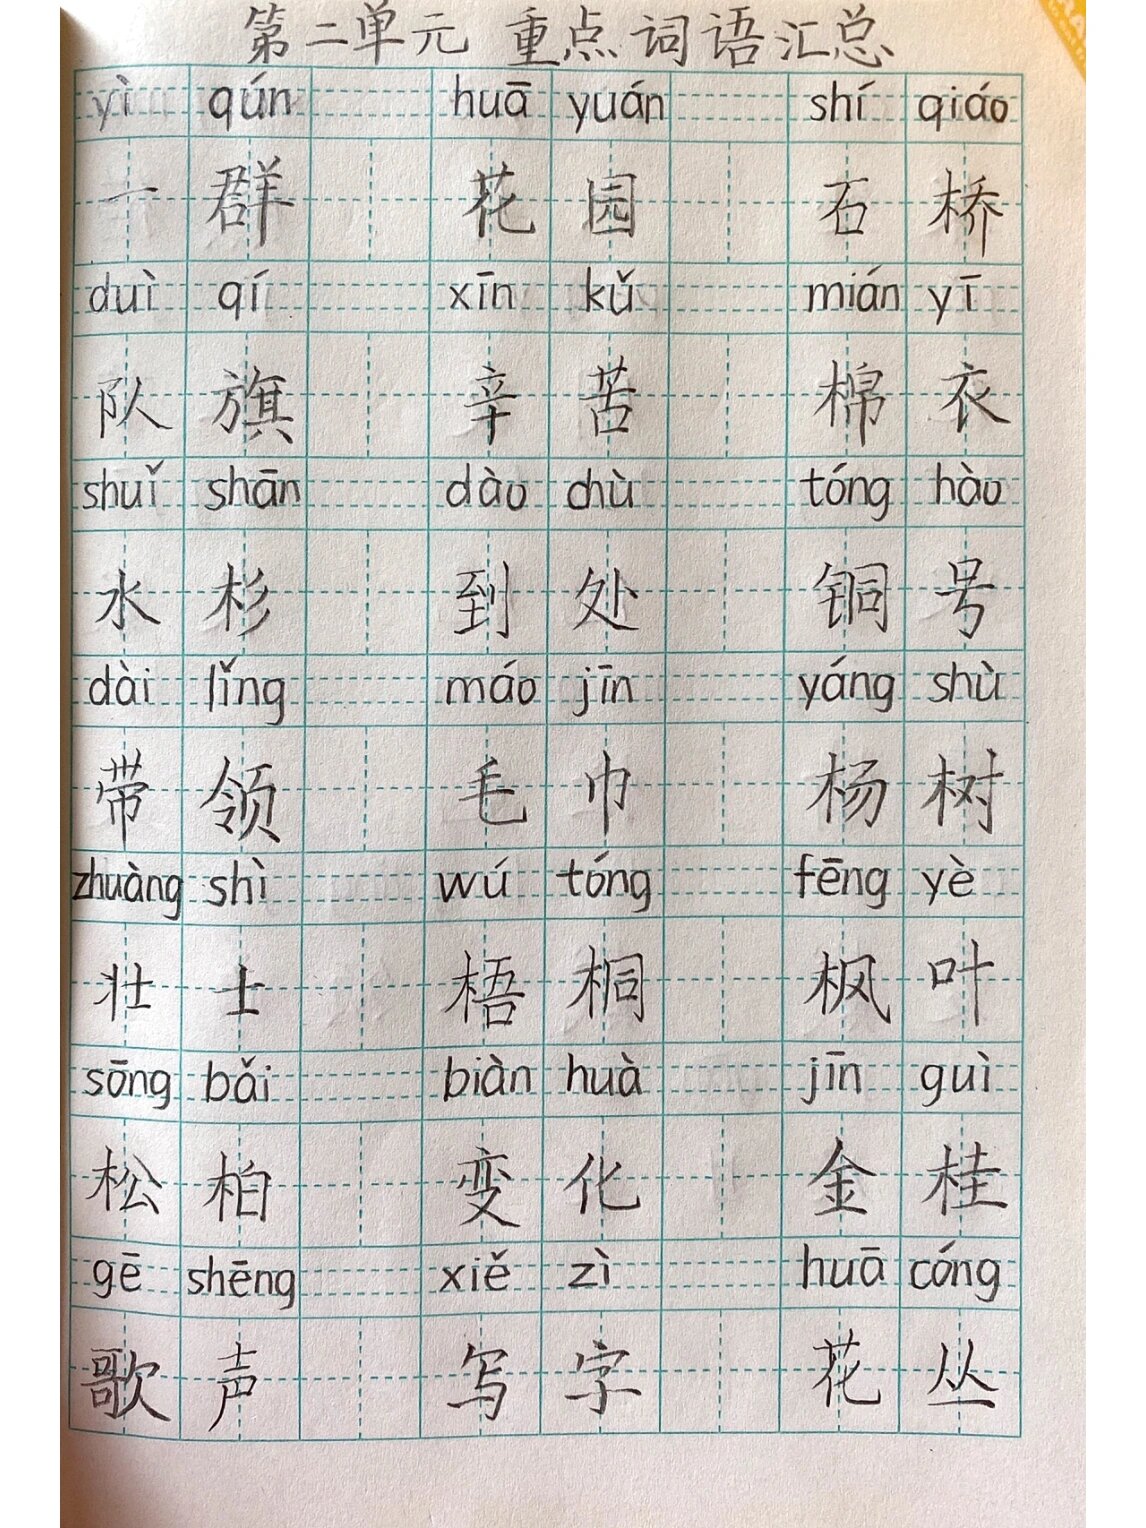 第二单元 重点词语汇总
yì qún huā yuán shí qiáo
一群 花园 石桥
duì qí xīn kǔ mián yī
队旗 辛苦 棉衣
shuǐ shān dào chù tóng hào
水杉 到处 铜号
dài lǐng máo jīn yáng shù
带领 毛巾 杨树
zhuàng shì wú tóng fēng yè
壮士 梧桐 枫叶
sōng bǎi biàn huà jīn guì
松柏 变化 金桂
gē shēng xiě zì huā cóng
歌声 写字 花丛